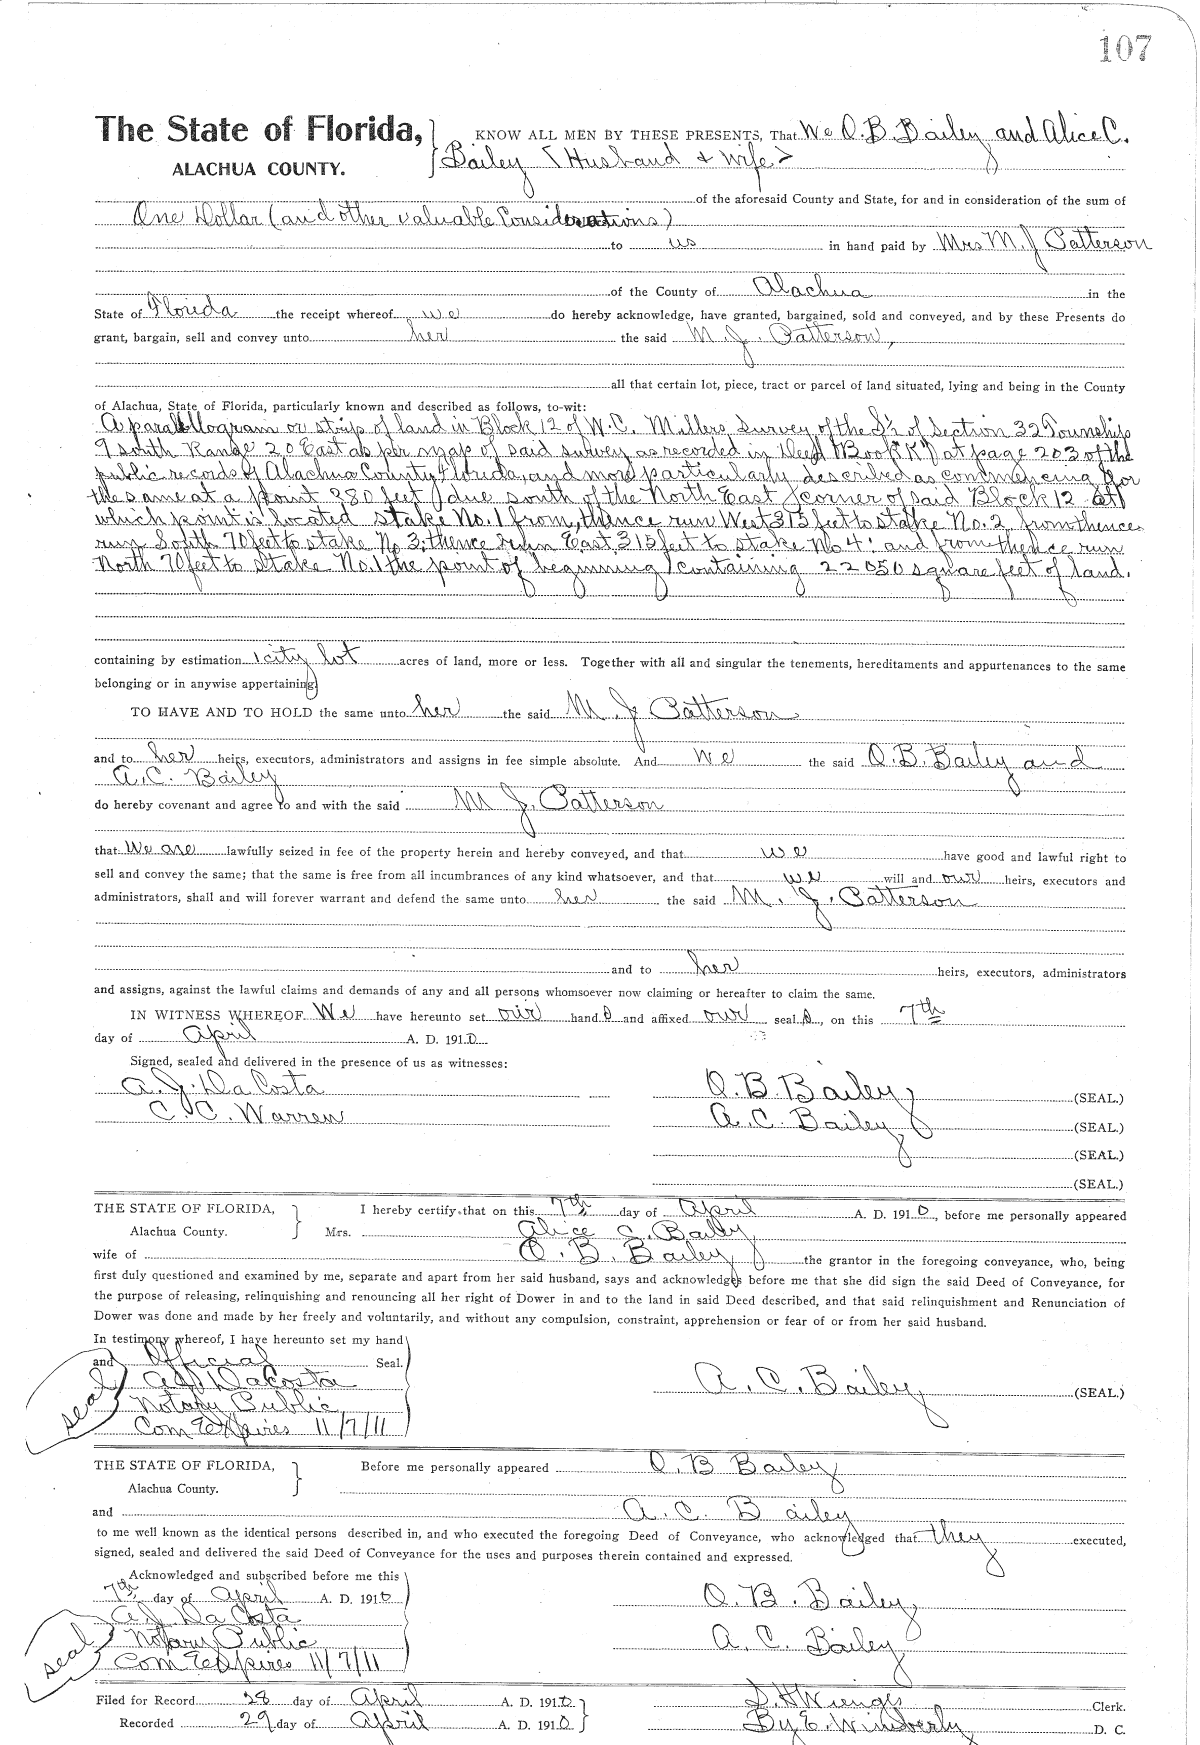 107
The State of Florida, KNOW ALL MEN BY THESE PRESENTS, That We O. B. Bailey and Alice C.
ALACHUA COUNTY. Bailey <Husband & Wife>
of the aforesaid County and State, for and in consideration of the sum of
One Dollar (and other valuable Considerations)
to us in hand paid by Mrs M. J Patterson
of the County of Alachua in the
State of Florida the receipt whereof we do hereby acknowledge, have granted, bargained, sold and conveyed, and by these Presents do
grant, bargain, sell and convey unto her the said M. J. Patterson,
all that certain lot, piece, tract or parcel of land situated, lying and being in the County
of Alachua, State of Florida, particularly known and described as follows, to-wit:
A parallelogram or strip of land in Block 12 of W. C. Millers Survey of the S½ of Section 32 Township
9 south Range 20 East as per map of said survey as recorded in Deed "Book "K") at page 203 of the
public records of Alachua County Florida, and more particularly described as commencing for
the same at a point 380 feet due south of the North East corner of said Block 12 at
which point is located stake No. 1 from, thence run West 315 feet to stake No. 2, from thence
run South 70 feet to stake No 3; thence run East 315 feet to stake No 4: and from thence run
North 70 feet to Stake No. 1 the point of beginning containing 22050 square feet of land.
containing by estimation 1 city lot acres of land, more or less. Together with all and singular the tenements, hereditaments and appurtenances to the same
belonging or in anywise appertaining
TO HAVE AND TO HOLD the same unto her the said M. J Patterson
and to her heirs, executors, administrators and assigns in fee simple absolute. And we the said O. B. Bailey and
A. C. Bailey
do hereby covenant and agree to and with the said M J. Patterson
that We are lawfully seized in fee of the property herein and hereby conveyed, and that we have good and lawful right to
sell and convey the same; that the same is free from all incumbrances of any kind whatsoever, and that we will and our heirs, executors and
administrators, shall and will forever warrant and defend the same unto her the said M. J. Patterson
and to her heirs, executors, administrators
and assigns, against the lawful claims and demands of any and all persons whomsoever now claiming or hereafter to claim the same.
IN WITNESS WHEREOF We have hereunto set our hand s and affixed our seal s, on this 7th
day of April A. D. 1910
Signed, sealed and delivered in the presence of us as witnesses:
A. J. Da Costa O. B. Bailey (SEAL.)
C. C. Warren A. C. Bailey (SEAL.)
(SEAL.)
(SEAL.)
THE STATE OF FLORIDA, I hereby certify that on this 7th day of April A. D. 1910, before me personally appeared
Alachua County. Mrs. Alice C. Bailey
wife of O. B. Bailey the grantor in the foregoing conveyance, who, being
first duly questioned and examined by me, separate and apart from her said husband, says and acknowledges before me that she did sign the said Deed of Conveyance, for
the purpose of releasing, relinquishing and renouncing all her right of Dower in and to the land in said Deed described, and that said relinquishment and Renunciation of
Dower was done and made by her freely and voluntarily, and without any compulsion, constraint, apprehension or fear of or from her said husband.
In testimony whereof, I have hereunto set my hand
and Official Seal.
seal A J Da Costa A. C. Bailey (SEAL.)
Notary Public
Com Expires 11/7/11
THE STATE OF FLORIDA, Before me personally appeared O. B Bailey
Alachua County.
and A. C. Bailey
to me well known as the identical persons described in, and who executed the foregoing Deed of Conveyance, who acknowledged that they executed,
signed, sealed and delivered the said Deed of Conveyance for the uses and purposes therein contained and expressed.
Acknowledged and subscribed before me this
7th day of April A. D. 1910 O. B. Bailey
A. J. Da Costa
seal Notary Public A. C. Bailey
Com Expires 11/7/11
Filed for Record 28 day of April A. D. 1910 S. H Wienges Clerk.
Recorded 29 day of April A. D. 1910 By E. Wimberly D. C.